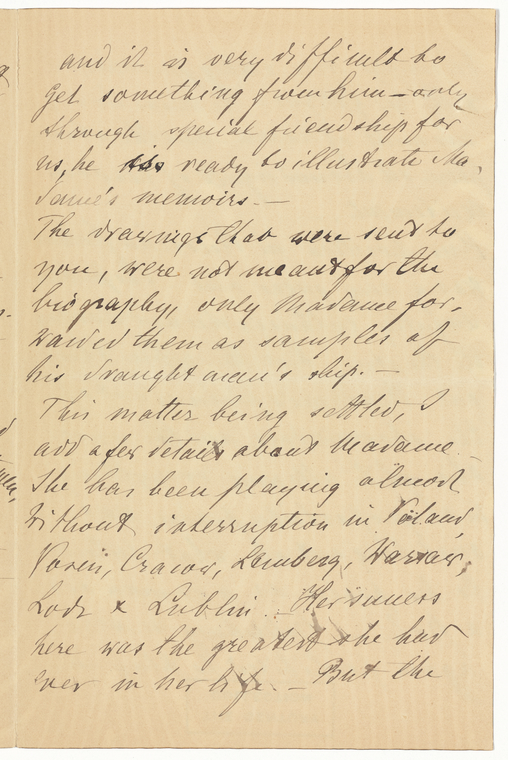 and it is very difficult to
get something from him — only
through special friendship for
us, he is ready to illustrate Ma-
dame's memoirs. —
The drawings that were send to
you, were not meant for the
biography, only Madame for-
warded them as samples of
his draughtman's ship. —
This matter being settled, I
add a few details about Madame —
She has been playing almost
without interruption in Poland,
Posen, Cracow, Lemberg, Warsaw,
Lodz & Lublin. Her sucess
here was the greatest she had
ever in her life. — But the